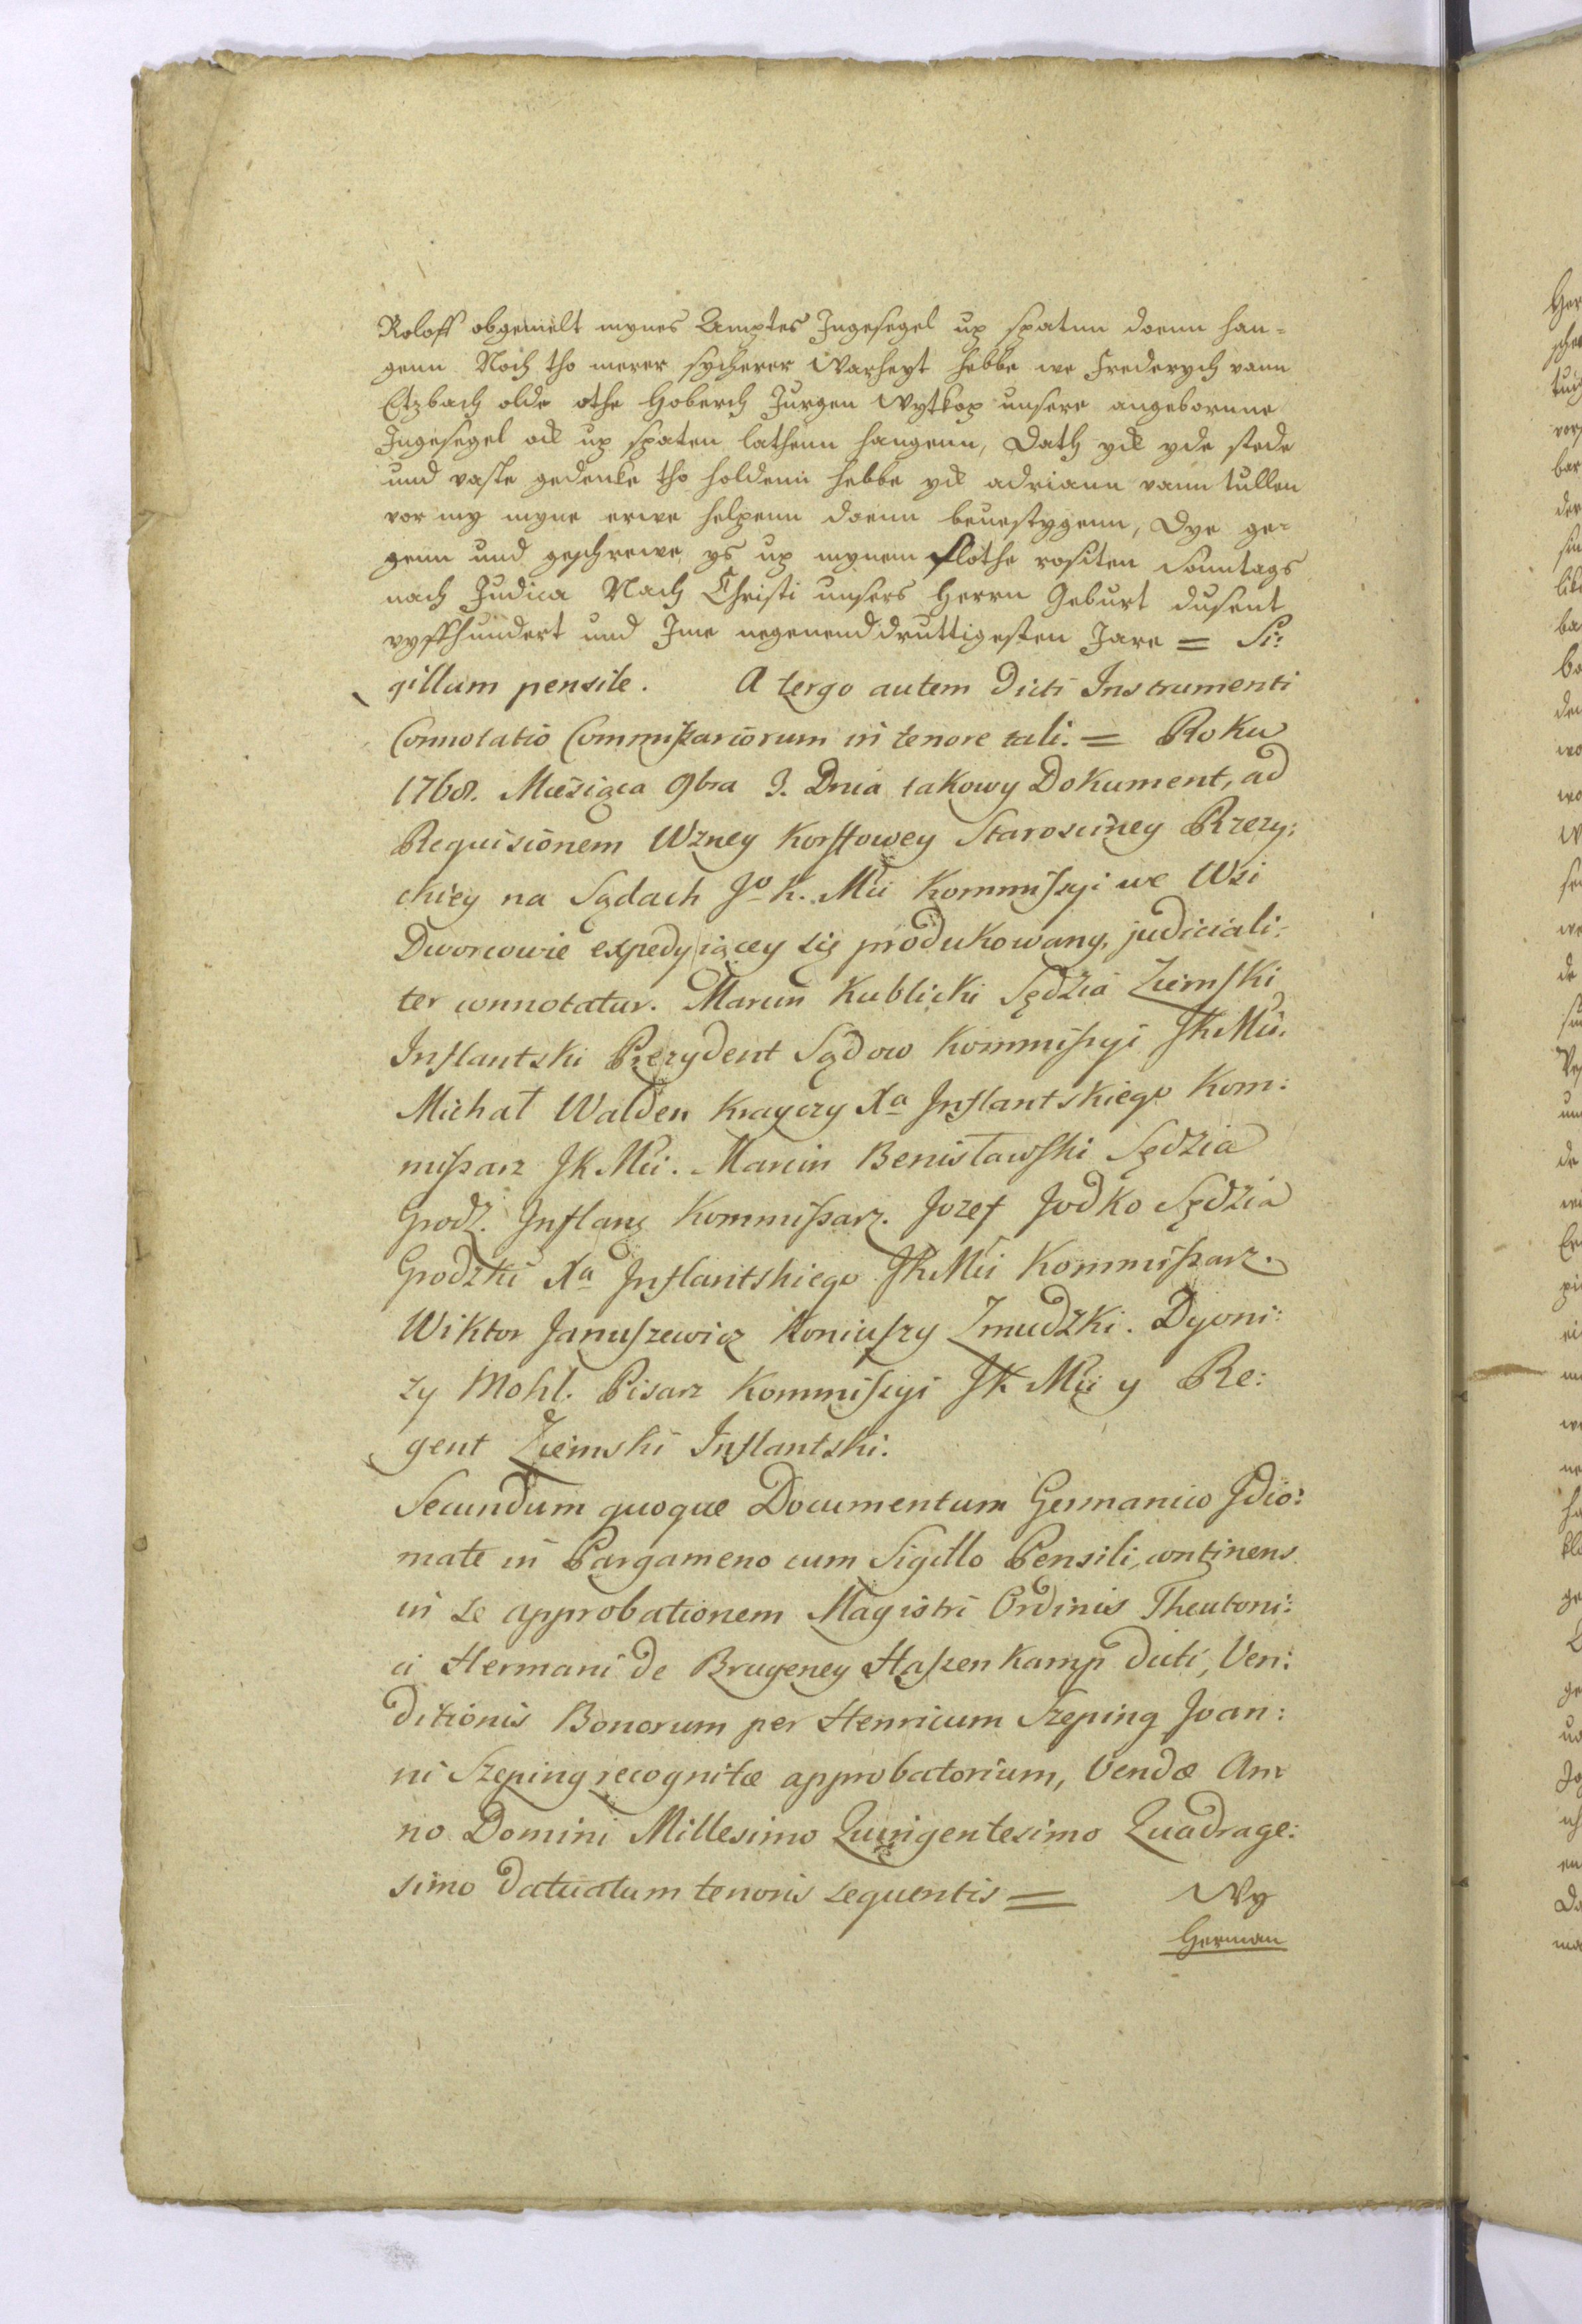 Roloff obgemelt mynes Amptes Ingesegel up spatnn doenn han=
genn Noch tho merer sycherer Warheyt hebbe we Frederych vann
Etzbach olde othe Hoberch Jurgen Wytkop unsere angebornne
Ingesegel ock up spaten lathenn hangenn, Dath yck yde stede
und vaste gedencke tho holdenn hebbe yck adriann vann tullen
vor my myne erwe helpenn doenn bevestygenn, Dye ge=
genn und geschrewe ys up mynem slothe rositen Sonntags
nach Judica Nach Christi unsers Herrn Geburt dusent
vyffhundert und Jme negenenddruttigesten Jare = Si:
gillum pensile. A tergo autem dicti Instrumenti
Connotatio Commissariorum in tenore tali. = Roku
1768. Miesiąca 9bra 3. Dnia takowy Dokument, ad
Requisionem Wzney Korffowey Starosciney Rzezy:
chiey na Sądach Jo K. Mci Kommissyi we Wsi
Dworcowie expedyiącey się produkowany, judiciali:
ter connotatur. Marcin Kublicki Sędzia Ziemski
Inflantski Prezydent Sądow Kommissyi JKMci.
Michał Walden Krayczy Xa Inflantskiego Kom:
missarz JKMci. Marcin Benisławski Sędzia
Grodz. Inflang Kommissarz. Jozef Jodko Sędzia
Grodzki Xa Inflantskiego JKMci Kommissarz.
Wiktor Januszewicz Koniuszy Zmudzki. Dyoni:
zy Mohl. Pisarz Kommissyi JK Mci y Re:
gent Ziemski Inflantski.
Secundum quoque Documentum Germanico Idio:
mate in Pargameno cum Sigillo Pensili, continens
in se approbationem Magistri Ordinis Theutoni:
ci Hermani de Brugeney Haszenkamp dicti, Ven:
ditionis Bonorum per Henricum Szeping Joan:
ni Szeping recognitæ approbatorium, Vendæ An:
no Domini Millesimo Quingentesimo Quadrage:
simo datuatum tenoris sequentis = Wy
Herman